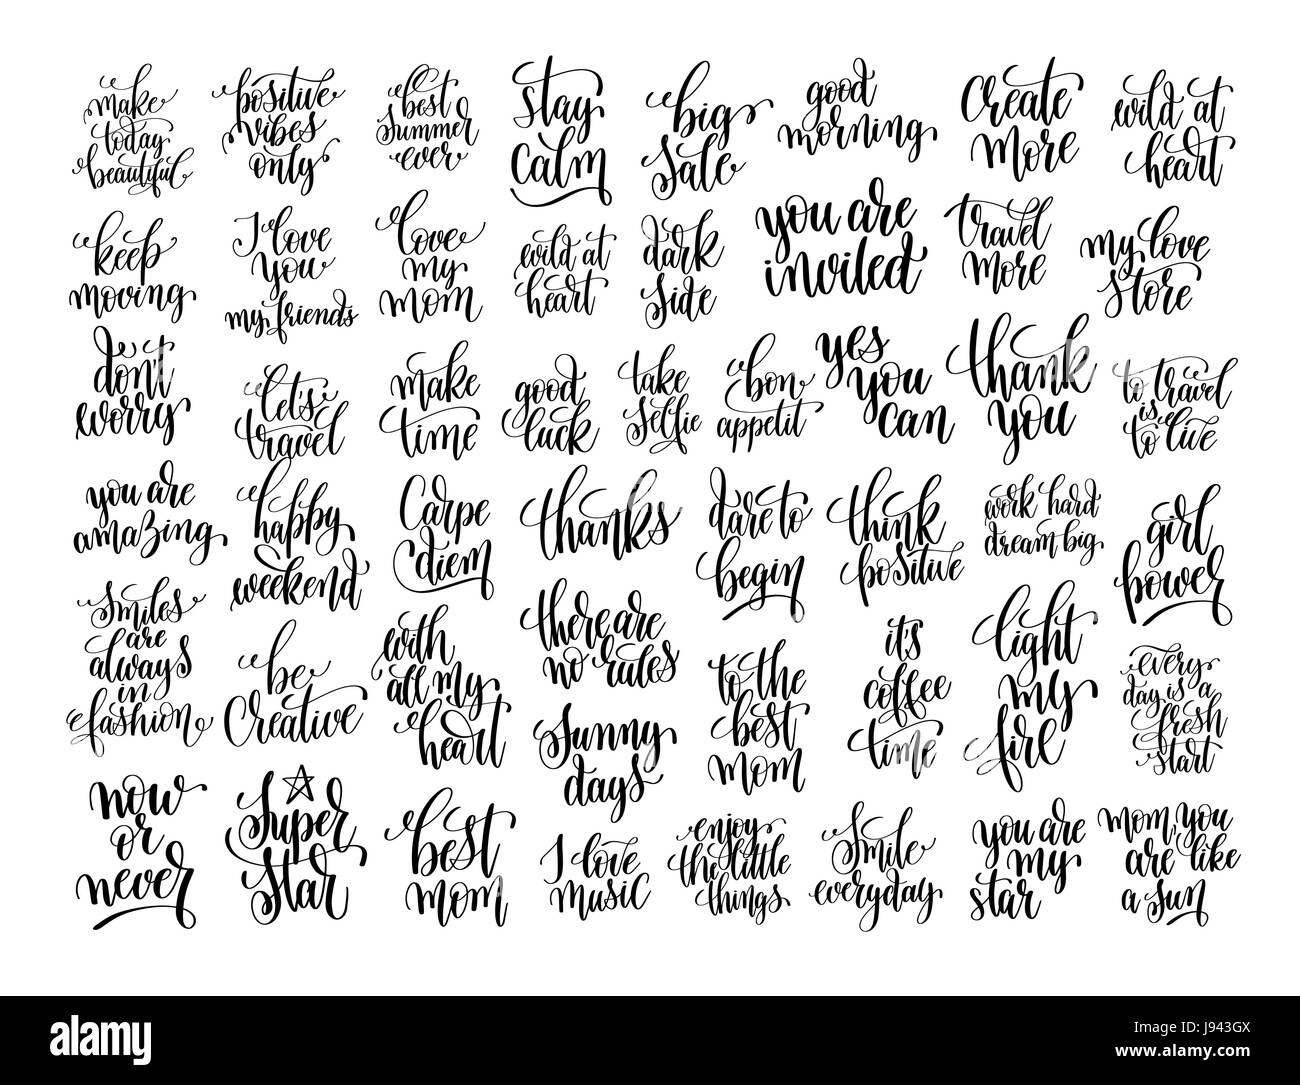 make
today
beautiful
positive
vibes
only
best
summer
ever
stay
calm
big
sale
good
morning
create
more
wild at
heart
keep
moving
I love
you
my friends
love
my
mom
wild at
heart
dark
side
you are
invited
travel
more
my love
store
don't
worry
let's
travel
make
time
good
luck
take
selfie
bon
appetit
yes
you
can
thank
you
to travel
is
to live
you are
amazing
happy
weekend
Carpe
diem
thanks
dare to
begin
think
positive
work hard
dream big
girl
power
smiles
are
always
in
fashion
be
creative
with
all my
heart
there are
no rules
sunny
days
to the
best
mom
it's
coffee
time
light
my
fire
every
day is a
fresh
start
now
or
never
super
star
best
mom
I love
music
enjoy
the little
things
smile
everyday
you are
my
star
mom, you
are like
a sun
alamy
Image ID: J943GX
www.alamy.com